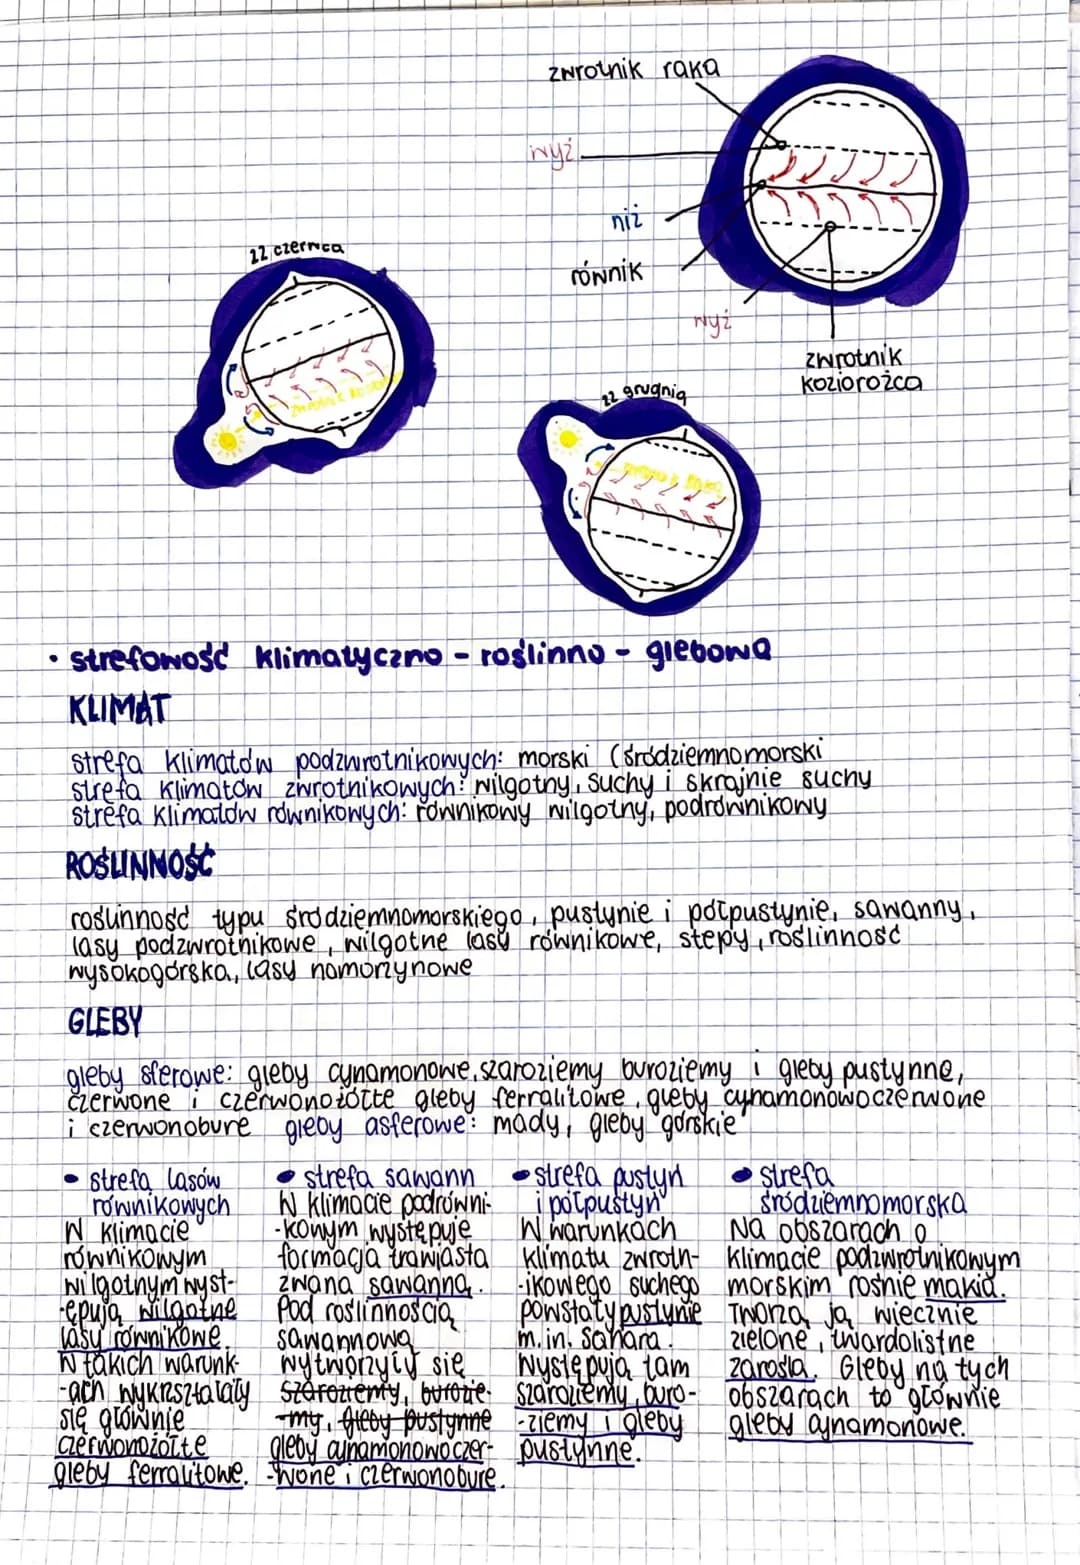 zwrotnik raka
wyż
niż
równik
wyż
zwrotnik
koziorożca
22 czerwca
22 grugnia
• strefowość klimatyczno - roślinno - glebowa
KLIMAT
strefa klimatów podzwrotnikowych: morski (śródziemnomorski
strefa klimatów zwrotnikowych: wilgotny, suchy i skrajnie suchy
strefa klimatów równikowych: równikowy wilgotny, podrównikowy
ROŚLINNOŚĆ
roślinność typu śródziemnomorskiego, pustynie i półpustynie, sawanny,
lasy podzwrotnikowe, wilgotne lasy równikowe, stepy, roślinność
wysokogórska, lasy namorzynowe
GLEBY
gleby sferowe: gleby cynamonowe, szaroziemy buroziemy i gleby pustynne,
czerwone i czerwonożółte gleby ferralitowe, gleby cynamonowoczerwone
i czerwonobure gleby asferowe: mady, gleby górskie
• strefa lasów
równikowych
W klimacie
równikowym
wilgotnym wyst-
-ępują wilgotne
lasy równikowe
W takich warunk-
-ach wykrształały
się głównie
czerwonożółte
gleby ferralitowe.
• strefa sawann
W klimacie podrówni-
-kowym występuje
formacja trawiasta
zwana sawanną.
Pod roślinnością
sawannową
wytworzyły się
szaroziemy, burozie-
-my, gleby pustynne
gleby cynamonowoczer-
-wone i czerwonobure.
• strefa pustyń
i półpustyń
W warunkach
klimatu zwrotn-
-ikowego suchego
powstały pustynie
m.in. Sahara.
Występują tam
szaroziemy, buro-
-ziemy i gleby
pustynne.
• strefa
śródziemnomorska
Na obszarach o
klimacie podzwrotnikowym
morskim rośnie makia.
Tworzą ją wiecznie
zielone, twardolistne
zarośla. Gleby na tych
obszarach to głównie
gleby cynamonowe.